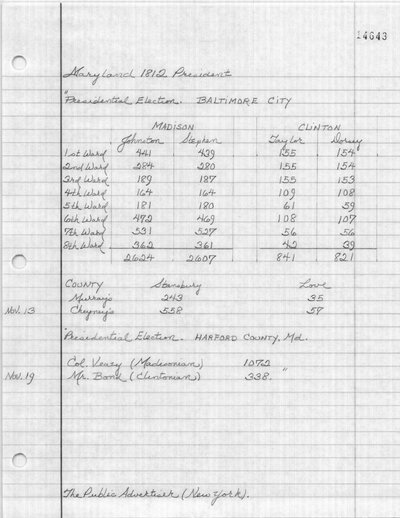 14643
Maryland 1812 President
"Presidential Election. BALTIMORE CITY
MADISON CLINTON
Johnston Stephen Taylor Dorsey
1st Ward 441 439 155 154
2nd Ward 284 280 155 154
3rd Ward 189 187 155 153
4th Ward 164 164 109 108
5th Ward 181 180 61 59
6th Ward 472 469 108 107
7th Ward 531 527 56 56
8th Ward 362 361 42 39
2624 2607 841 821
COUNTY Stansbury Love
Murray's 243 35
Nov. 13 Cheyney's 558 57
"Presidential Election. HARFORD COUNTY, Md.
Col. Veazy (Madisonian) 1072
Nov. 19 Mr. Bond (Clintonian) 338. "
The Public Advertiser (New York).